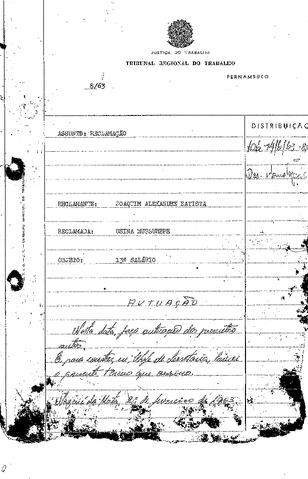 JUSTIÇA DO TRABALHO
TRIBUNAL REGIONAL DO TRABALHO
PERNAMBUCO
8/63
DISTRIBUIÇÃ
ASSUNTO: RECLAMAÇÃO
RECLAMANTE: JOAQUIM ALEXANDRE BATISTA
RECLAMADA: USINA MUSSUREPE
OBJETO: 13º SALÁRIO
AUTUAÇÃO
Nesta data, faço autuação dos presentes
autos.
E para constar, eu, Chefe de Secretaria, lavrei
o presente termo que assino.
da Mata, 22 de fevereiro de 1963